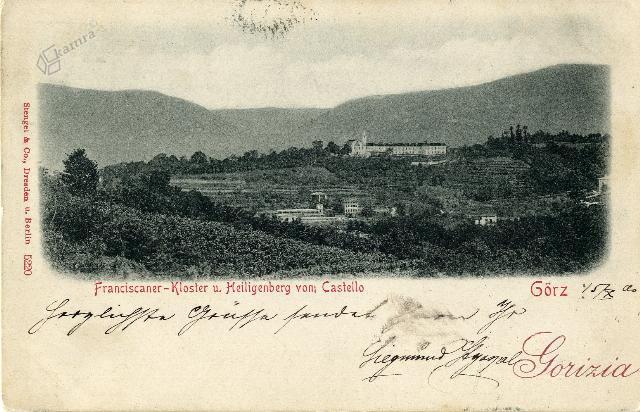 kamra
Stengel & Co., Dresden u. Berlin 5220
Franciscaner-Kloster u. Heiligenberg von Castello
Görz
Herzlichste Grüsse sendet Ihr
Siegmund
Gorizia